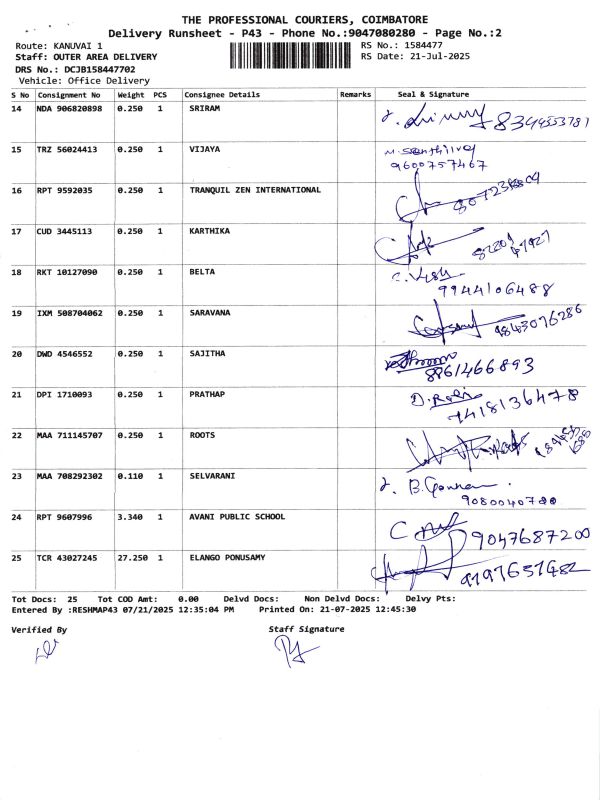 THE PROFESSIONAL COURIERS, COIMBATORE
Delivery Runsheet - P43 - Phone No.:9047080280 - Page No.:2
Route: KANUVAI 1 RS No.: 1584477
Staff: OUTER AREA DELIVERY RS Date: 21-Jul-2025
DRS No.: DCJB158447702
Vehicle: Office Delivery
S No Consignment No Weight PCS Consignee Details Remarks Seal & Signature
14 NDA 906820898 0.250 1 SRIRAM
15 TRZ 56024413 0.250 1 VIJAYA
9600757467
16 RPT 9592035 0.250 1 TRANQUIL ZEN INTERNATIONAL
17 CUD 3445113 0.250 1 KARTHIKA
18 RKT 10127090 0.250 1 BELTA
9944106488
19 IXM 508704062 0.250 1 SARAVANA
9843076286
20 DWD 4546552 0.250 1 SAJITHA
8861466893
21 DPI 1710093 0.250 1 PRATHAP
7418136478
22 MAA 711145707 0.250 1 ROOTS
23 MAA 708292302 0.110 1 SELVARANI
9080040780
24 RPT 9607996 3.340 1 AVANI PUBLIC SCHOOL
9047687200
25 TCR 43027245 27.250 1 ELANGO PONUSAMY
Tot Docs: 25 Tot COD Amt: 0.00 Delvd Docs: Non Delvd Docs: Delvy Pts:
Entered By :RESHMAP43 07/21/2025 12:35:04 PM Printed On: 21-07-2025 12:45:30
Verified By Staff Signature